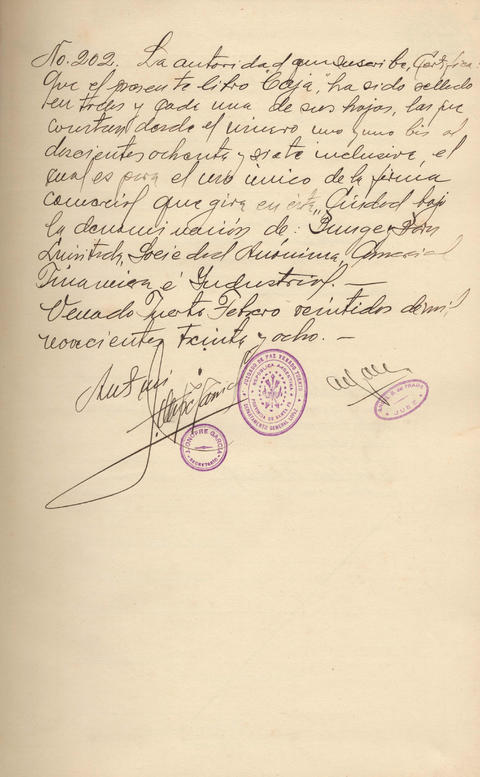 No. 202. La autoridad q' que suscribe, Certifica:
Que el presente libro "Caja", ha sido sellado
en todas y cada una de sus hojas, las que
constan desde el número uno y uno bis al
doscientos ochenta y siete inclusive, el
cual es para el uso único de la firma
comercial que gira en ésta Ciudad bajo
la denominación de: Bunge y Born
Limitada, Sociedad Anónima, Comercial
Financiera é Industrial. —
Venado Tuerto Febrero veintidos de mil
novecientos treinta y ocho. —
Ante mi
JUZGADO DE PAZ VENADO TUERTO
REPUBLICA ARGENTINA
PROVINCIA DE SANTA FE
DEPARTAMENTO GENERAL LOPEZ
J. ONOFRE GARCIA
SECRETARIO
JUEZ